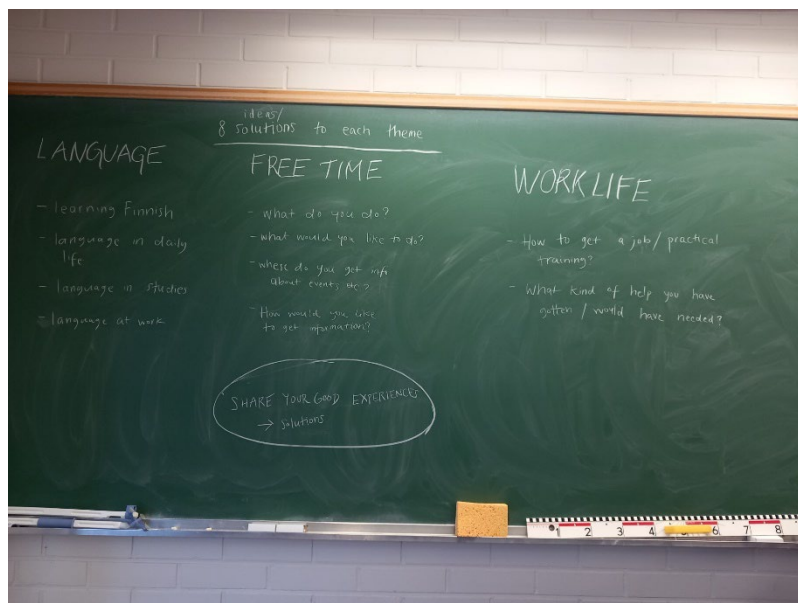 ideas/
8 solutions to each theme
LANGUAGE
- learning Finnish
- language in daily
life
- language in studies
- language at work
FREE TIME
- What do you do?
- what would you like to do?
- where do you get info
about events etc?
- How would you like
to get information?
SHARE YOUR GOOD EXPERIENCES
→ solutions
WORK LIFE
- How to get a job/ practical
training?
- What kind of help you have
gotten / would have needed?
1 2 3 4 5 6 7 8